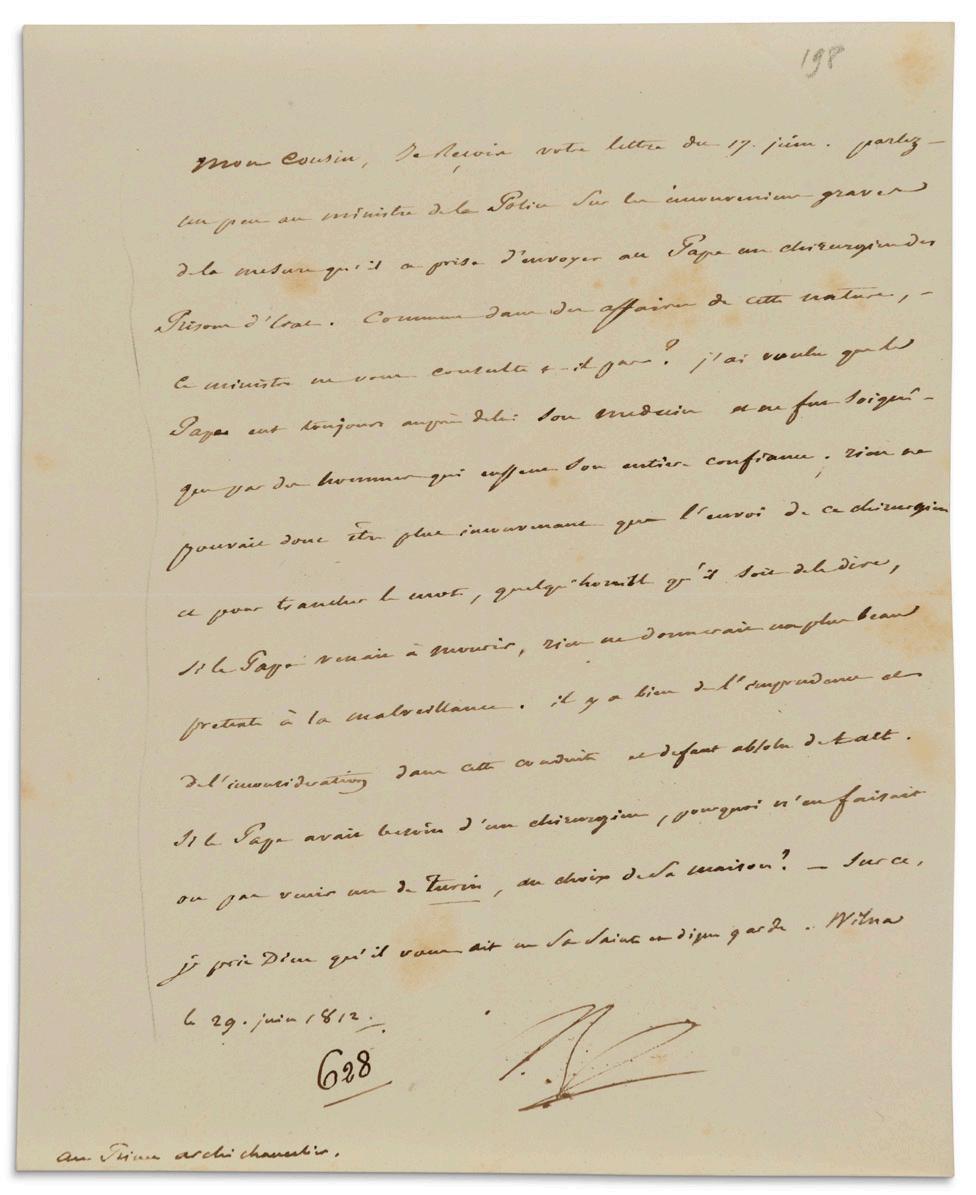 198
Mon Cousin, Je Reçois votre lettre du 17. juin. parlez
un peu au ministre de la Police sur les inconveniens graves
de la mesure qu'il a prise d'envoyer au Pape un chirurgien des
Prisons d'Etat. Comment dans des affaires de cette nature,
ce ministre ne vous consulte-t-il pas? j'ai voulu que le
Pape eut toujours auprès de lui son medecin et ne fut soigné
que par des hommes qui eussent son entiere confiance. rien ne
pouvait donc être plus inconvenant que l'envoi de ce chirurgien
et pour trancher le mot, quelqu'horrible qu'il soit de le dire,
si le Pape venait à mourir, rien ne donnerait un plus beau
pretexte à la malveillance. il y a bien de l'imprudence et
de l'inconsideration dans cette conduite et defaut absolu de tact.
Si le Pape avait besoin d'un chirurgien, pourquoi n'en faisait
on pas venir un de Turin, au choix de sa maison? — Sur ce,
je prie Dieu qu'il vous ait en sa Sainte et digne garde. Wilna
le 29. juin 1812.
628
au Prince archichancelier.